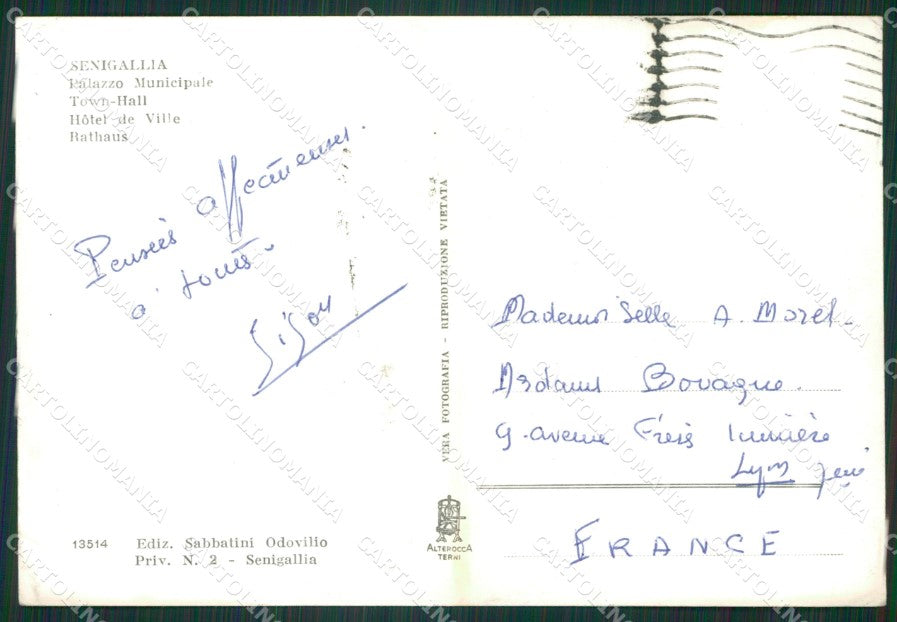 SENIGALLIA
Palazzo Municipale
Town-Hall
Hôtel de Ville
Rathaus
Pensées affectueuses.
à toutes.
VERA FOTOGRAFIA - RIPRODUZIONE VIETATA
Mademoiselle A. Morel.
Mesdames
9. avenue Frères Lumière
Lyon
FRANCE
13514 Ediz. Sabbatini Odovilio
Priv. N. 2 - Senigallia
ALTEROCCA
TERNI
CARTOLINOMANIA